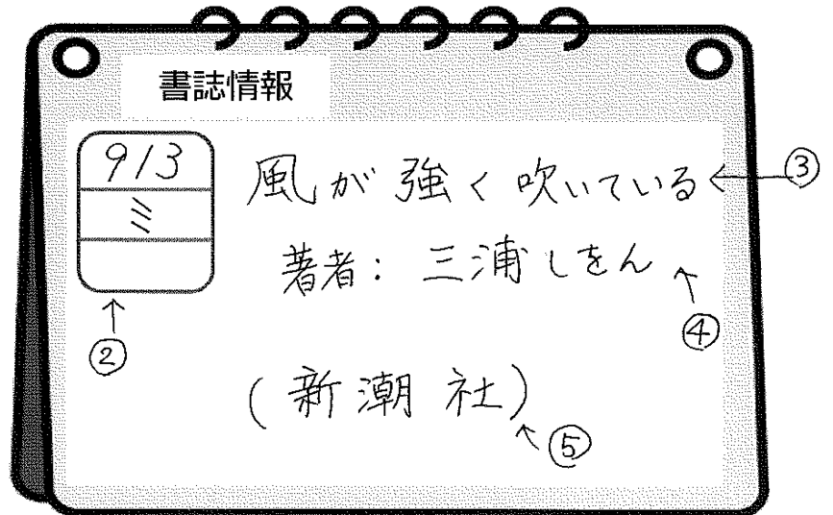 書誌情報
913
ミ
風が強く吹いている ③
著者: 三浦しをん
④
②
(新潮社)
⑤